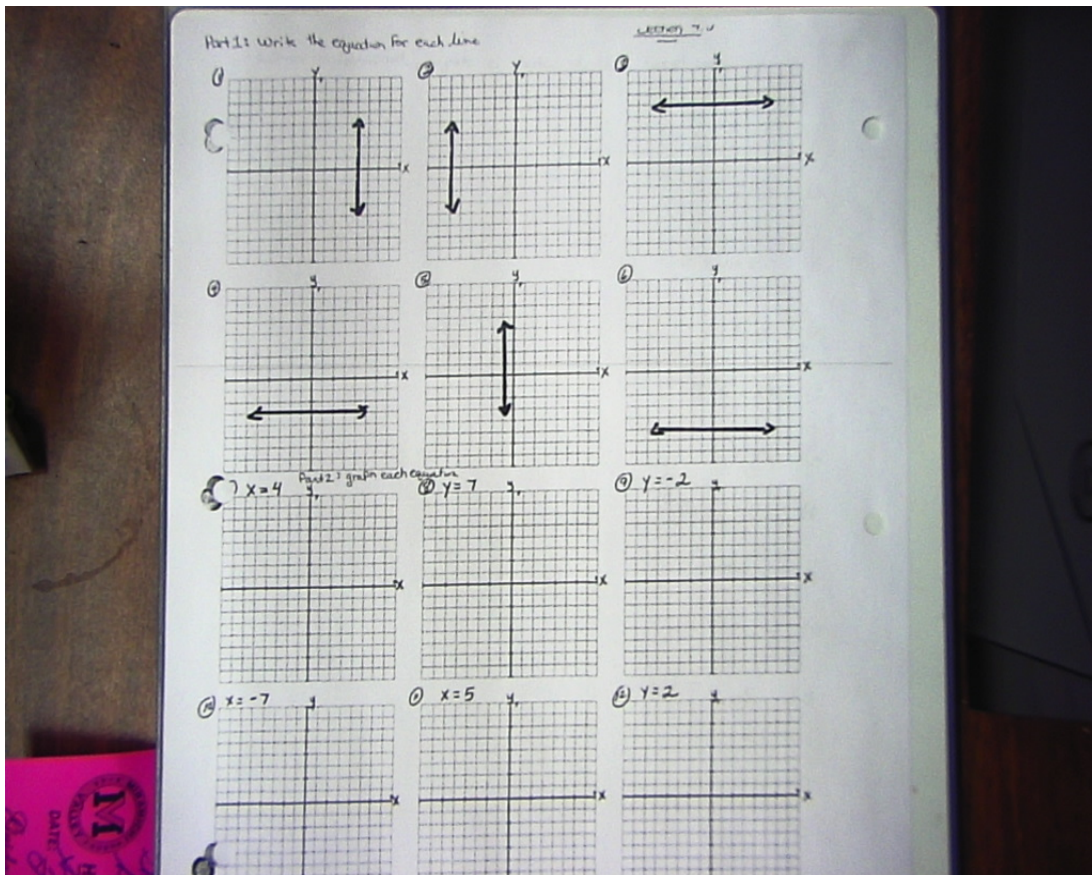 Part 1: Write the equation for each line
Section 7.
① y
x
② y
x
③ y
x
④ y
x
⑤ y
x
⑥ y
x
Part 2: graph each equation
) x = 4 y
x
⑧ y = 7 y
x
⑨ y = -2 y
x
⑩ x = -7 y
x
x = 5 y
x
⑫ y = 2 y
x
M
DATE: